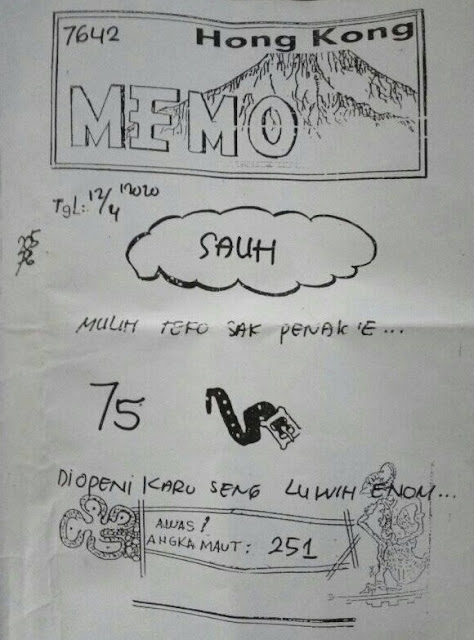 7642
Hong Kong
MEMO
TGL: 12/4 '2020
SAUH
MULIH TEKO SAK PENAK'E...
75
DIOPENI KARO SENG LUWIH ENOM...
AWAS!
ANGKA MAUT: 251